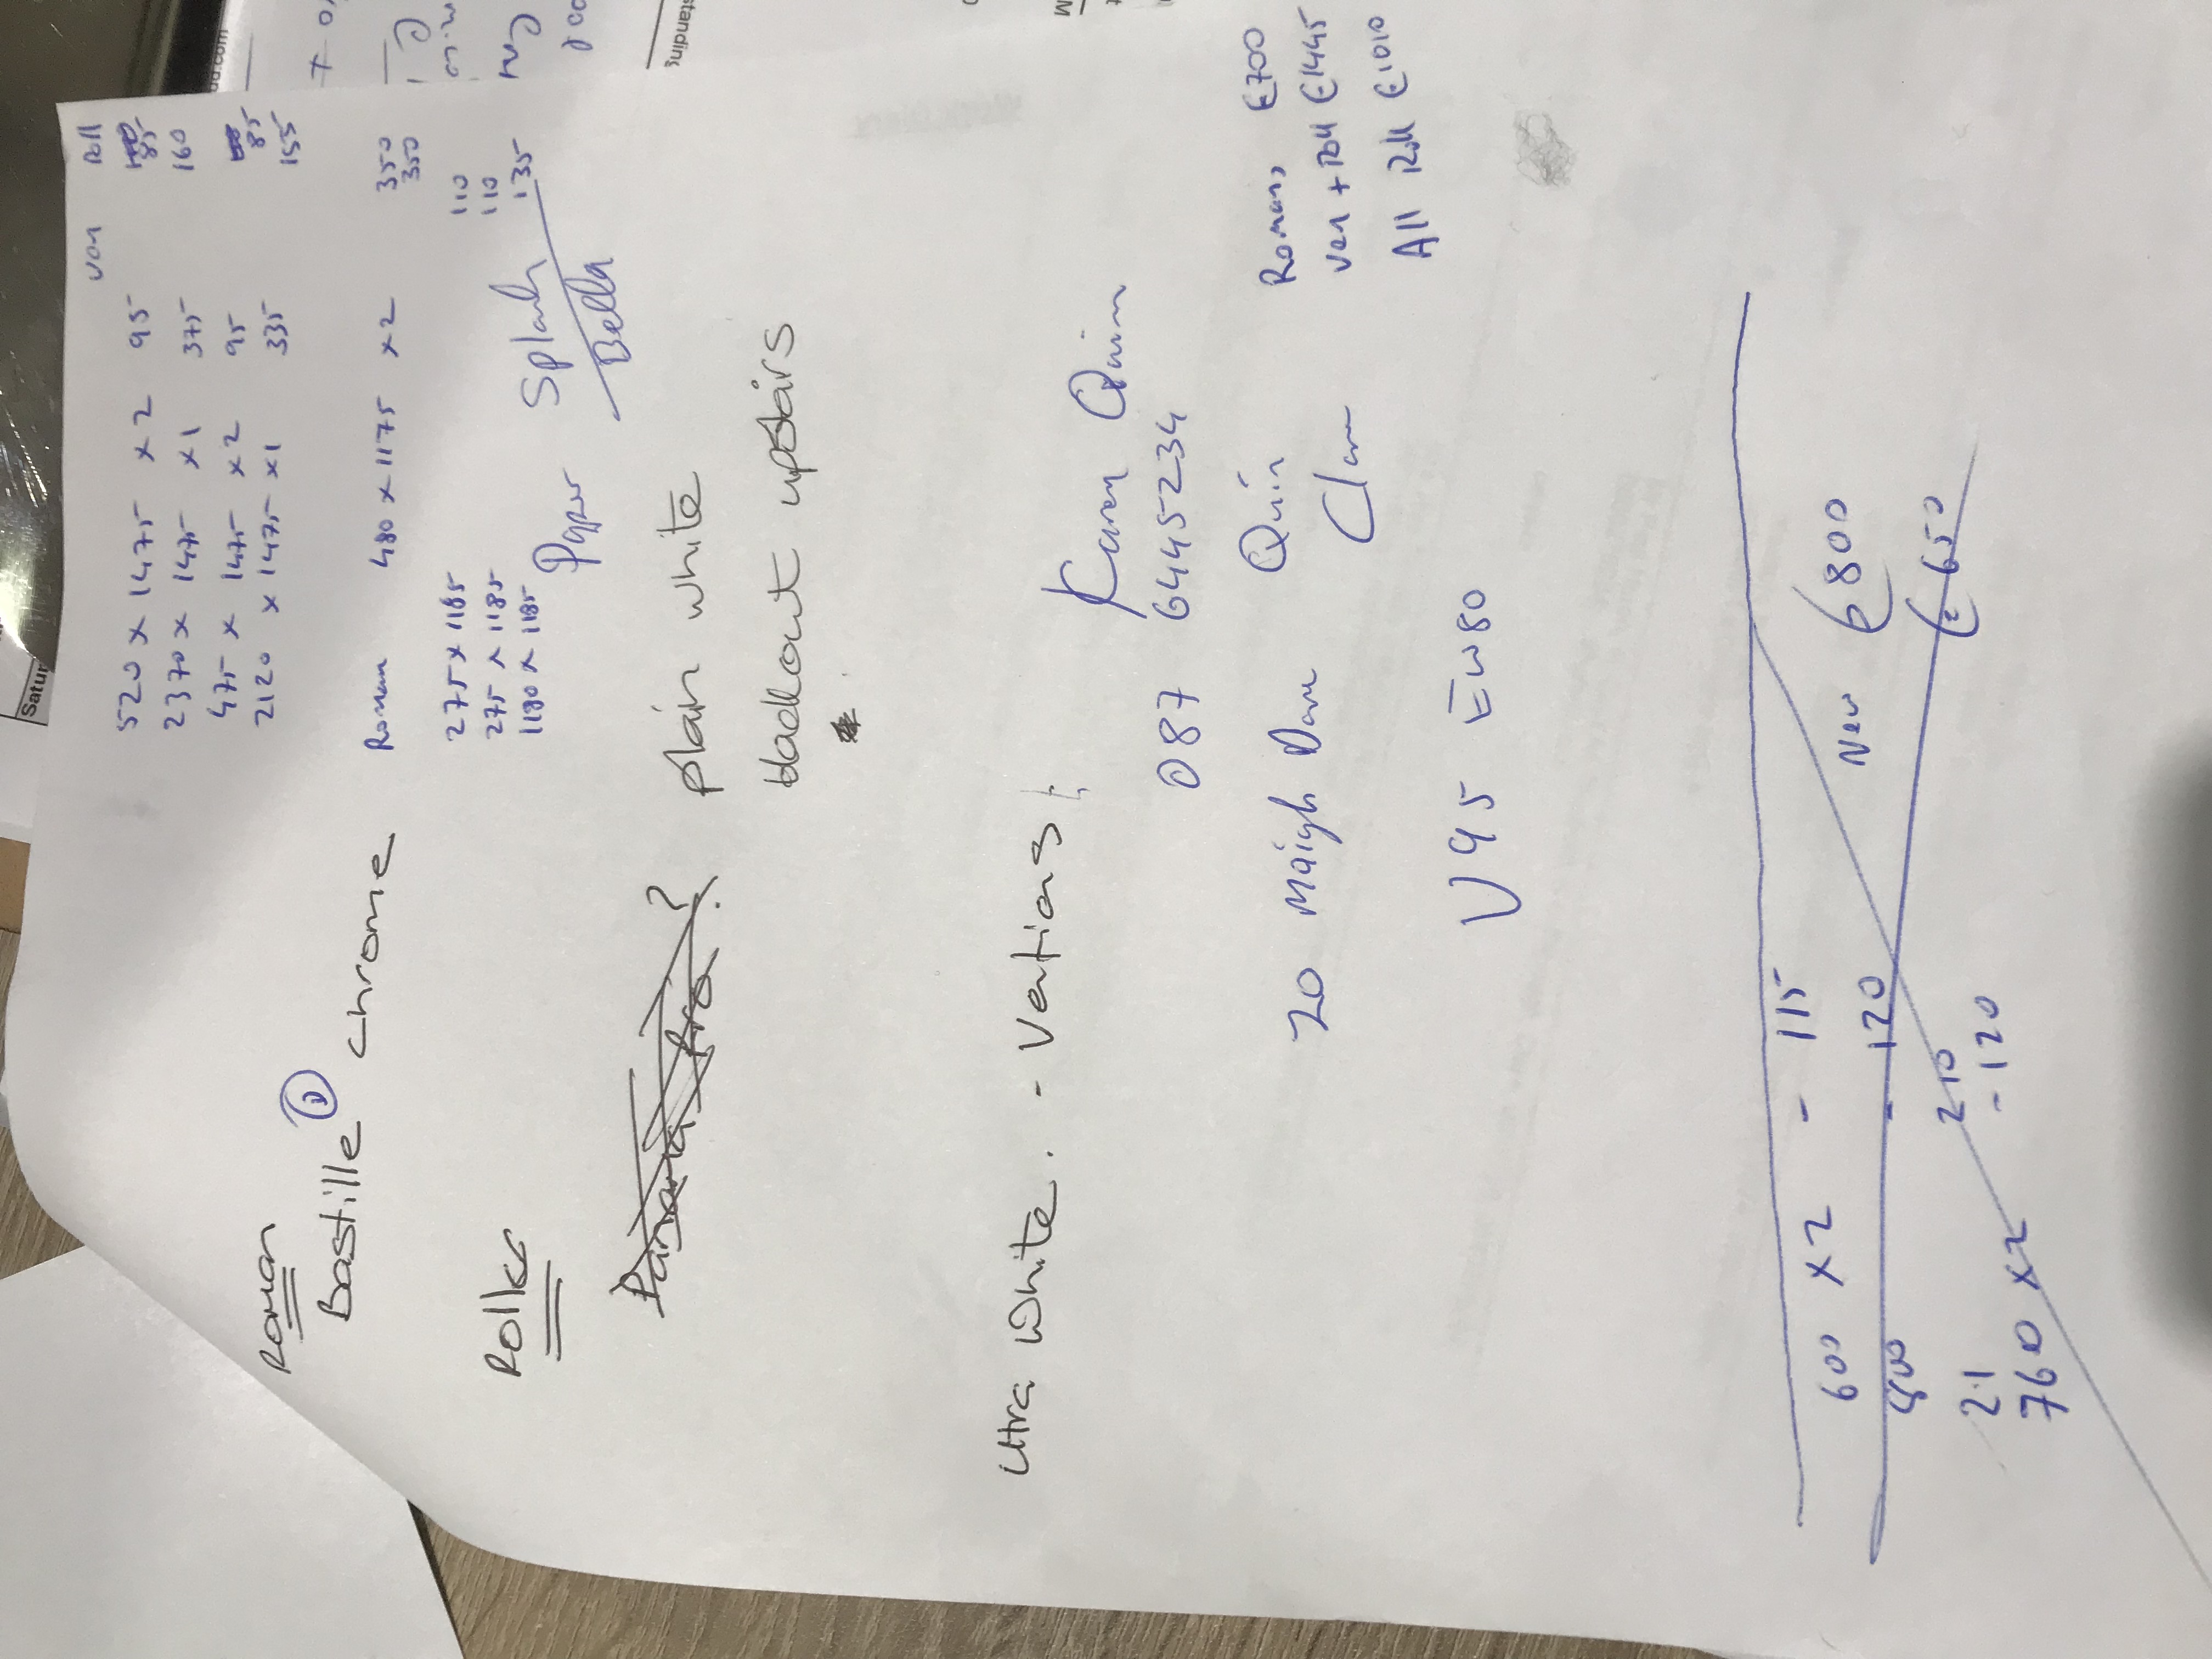 Ven Roll
520 x 1475 x 2 95 85
2370 x 1475 x 1 375 160
475 x 1475 x 2 95 85
2120 x 1475 x 1 335 155
Roman 480 x 1175 x 2 350
350
275 x 1185 110
275 x 1185 110
1180 x 1185 135
Roman
Bastille chrome
Roller
Splash
Bella
plain white
blackout upstairs
Ultra White. - Verticals
Karen Quinn
087 6445234
20 Maigh Quin
Clare
V95 EW80
Romans €700
Ven + Roll €1445
All Roll €1010
600 x 2 - 115
800 - 120
2.1 210
760 x 2 - 120
New €800
€650
Satur
standing